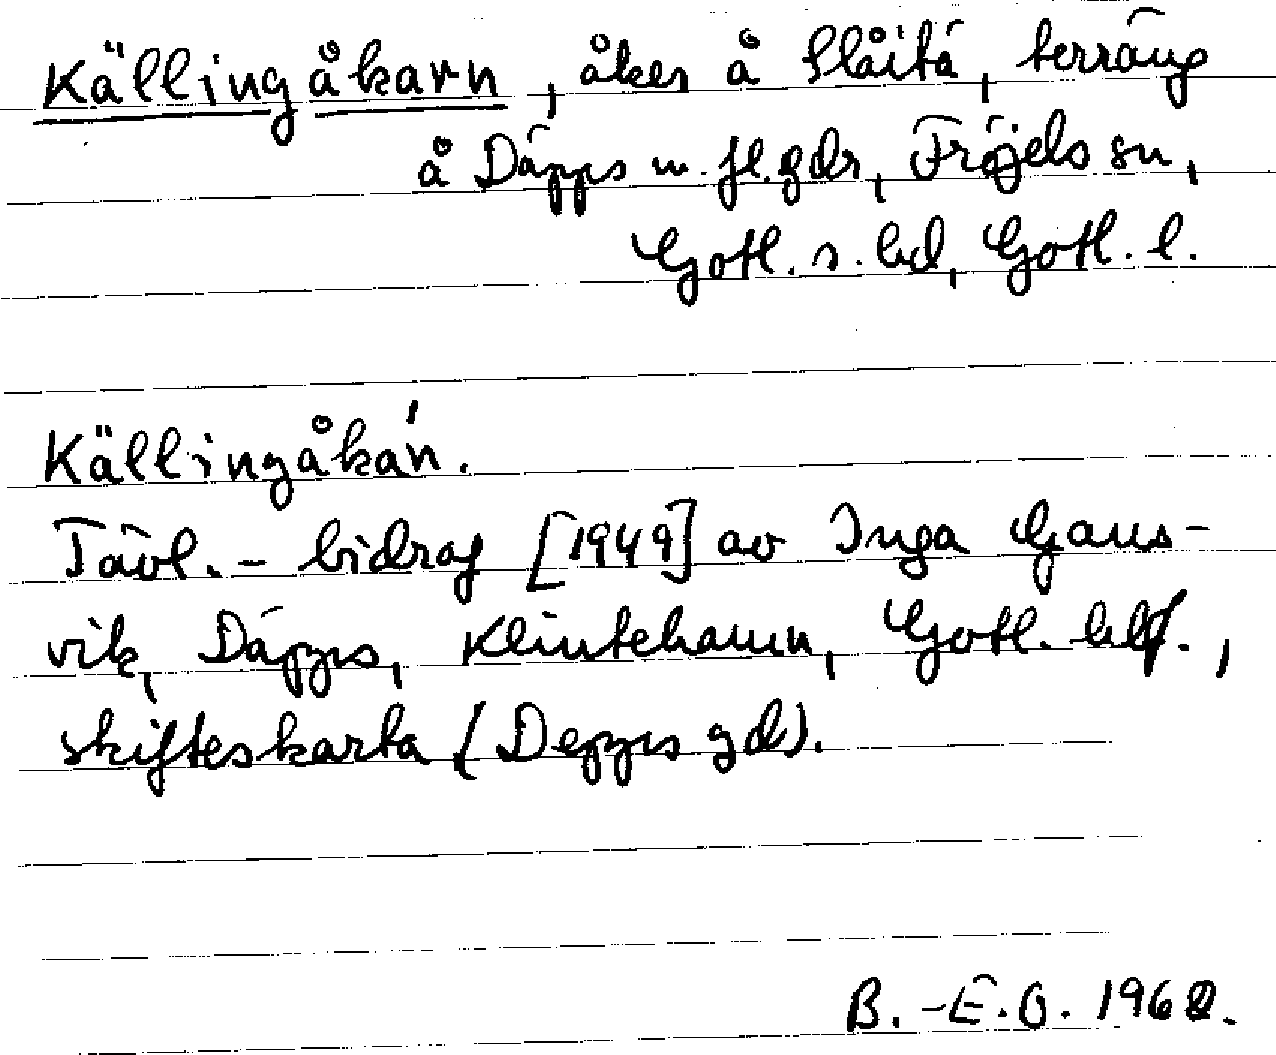 Källingåkarn, åker å Slåitá, terräng
å Däpps m. fl. gdr, Fröjels sn,
Gotl. s. hd, Gotl. l.
Källingåka'n.
Tävl.- bidrag [1949] av Inga Gans-
vik, Däpps, Klintehamn, Gotl.
skifteskarta (Depps gd).
B.-E.O. 1962.